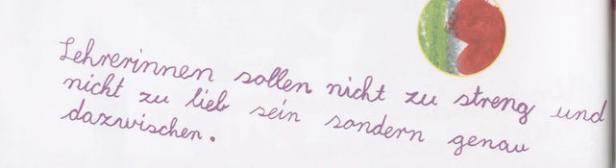 Lehrerinnen sollen nicht zu streng und
nicht zu lieb sein sondern genau
dazwischen.